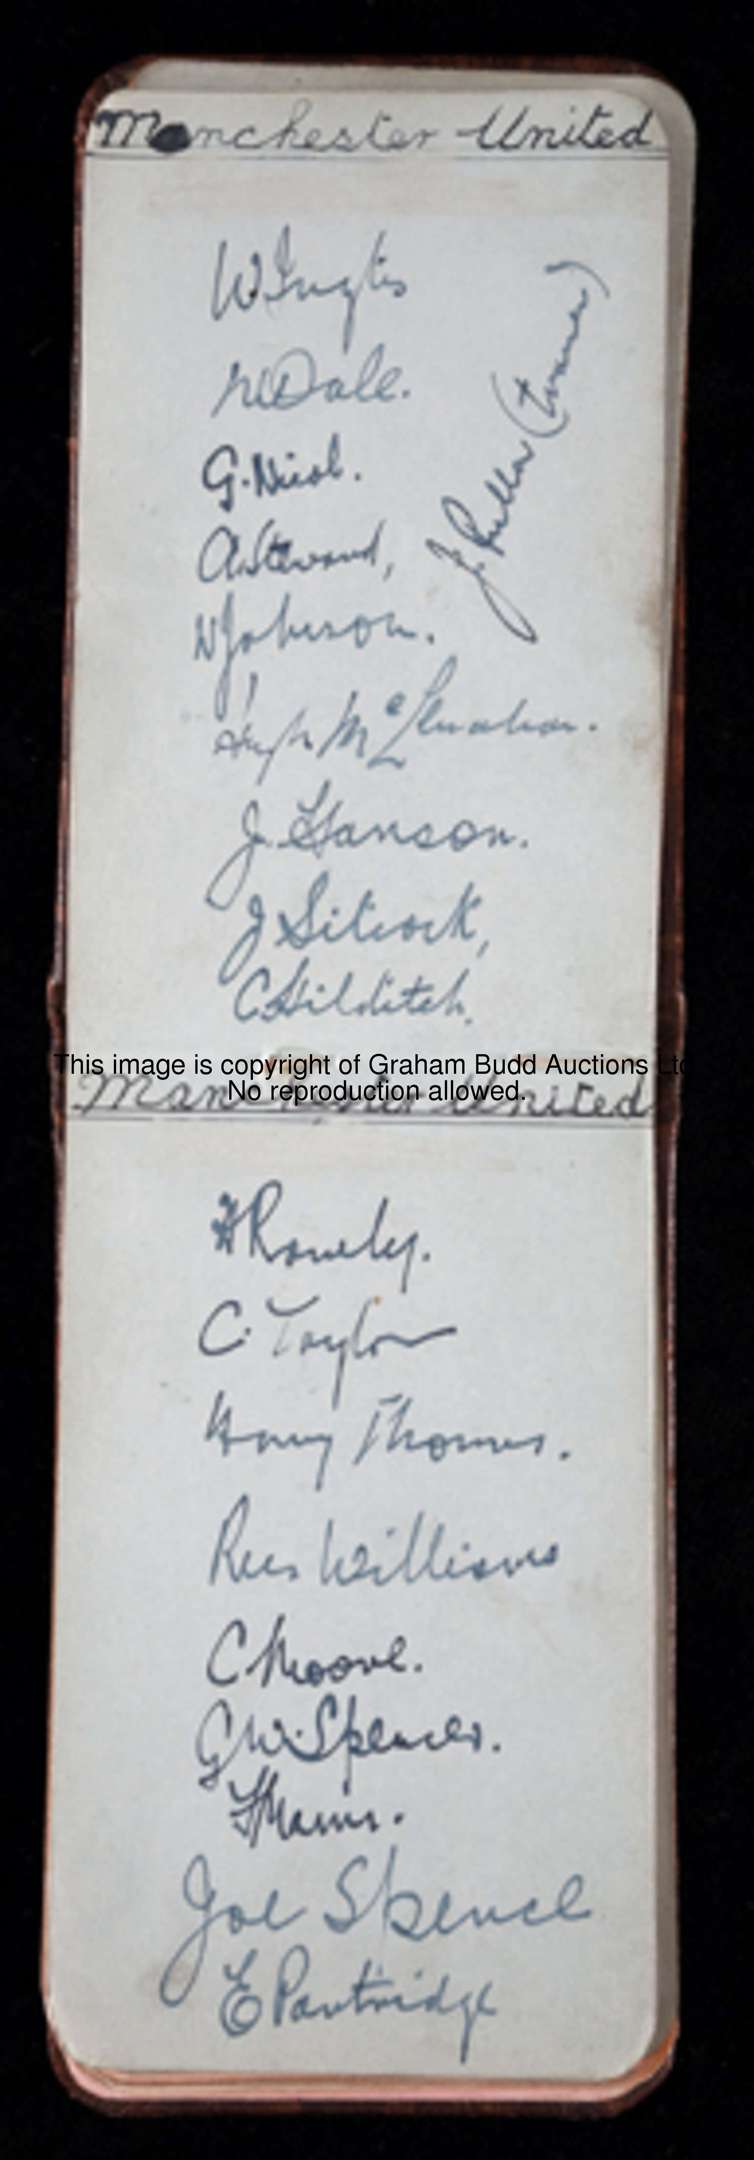 Manchester United
W Inglis
W Dale.
G. Nicol.
A Steward,
W Johnson.
J. Pullar (trainer)
Hugh McLenahan.
J. Hanson.
J Silcock,
C Hilditch.
This image is copyright of Graham Budd Auctions Ltd
No reproduction allowed.
Manchester United
H Rowley.
C. Taylor
Harry Thomas.
Rees Williams
C Moore.
G W. Spencer.
F Mann.
Joe Spence
E Partridge